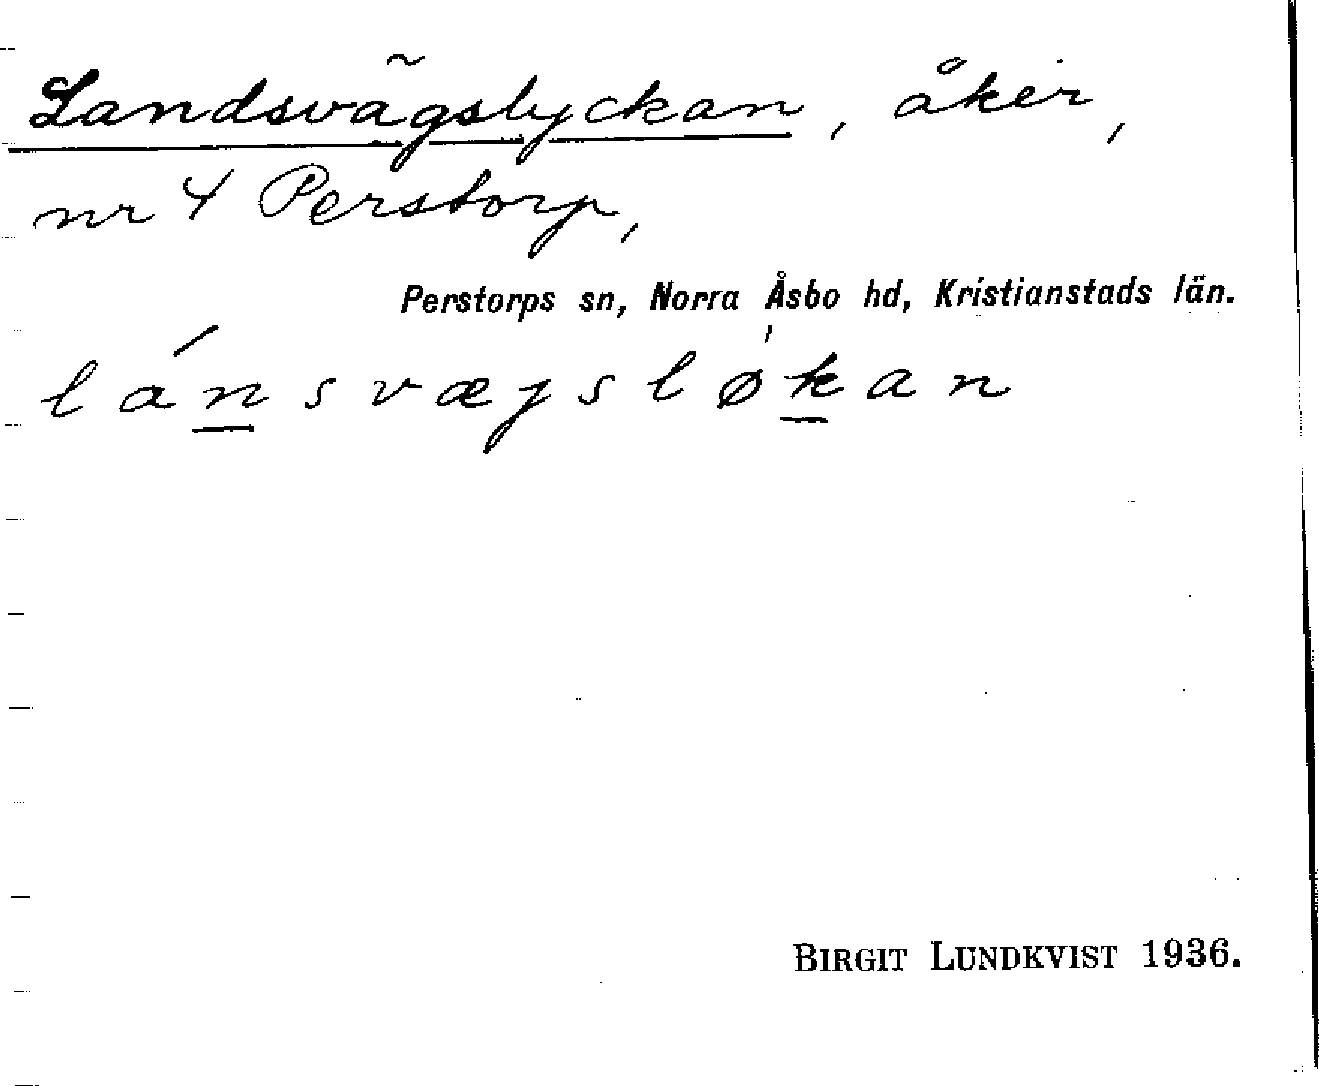 Landsvägslyckan, åker,
nr 4 Perstorp,
Perstorps sn, Norra Åsbo hd, Kristianstads län.
lánsvæjsløkan
BIRGIT LUNDKVIST 1936.